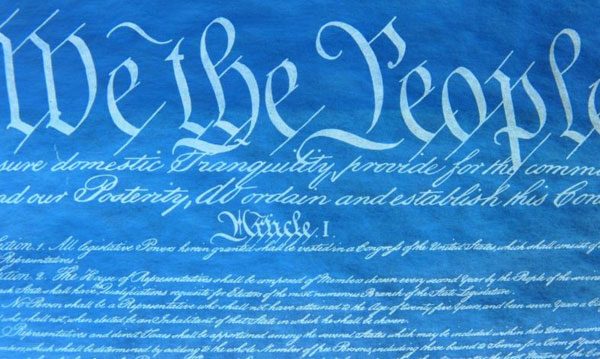 We the People
sure domestic Tranquility, provide for the comm
nd our Posterity, do ordain and establish this Con
Article. I.
ction. 1. All legislative Powers herein granted shall be vested in a Congress of the United States, which shall consist of
Representatives.
ction. 2. The House of Representatives shall be composed of Members chosen every second Year by the People of the several
ch State shall have Qualifications requisite for Electors of the most numerous Branch of the State Legislature.
No Person shall be a Representative who shall not have attained to the Age of twenty five Years, and been seven Years a
who shall not, when elected, be an Inhabitant of that State in which he shall be chosen.
Representatives and direct Taxes shall be apportioned among the several States which may be included within this Union,
which shall be determined by adding to the whole Number of free Persons, including those bound to Service for a Term of